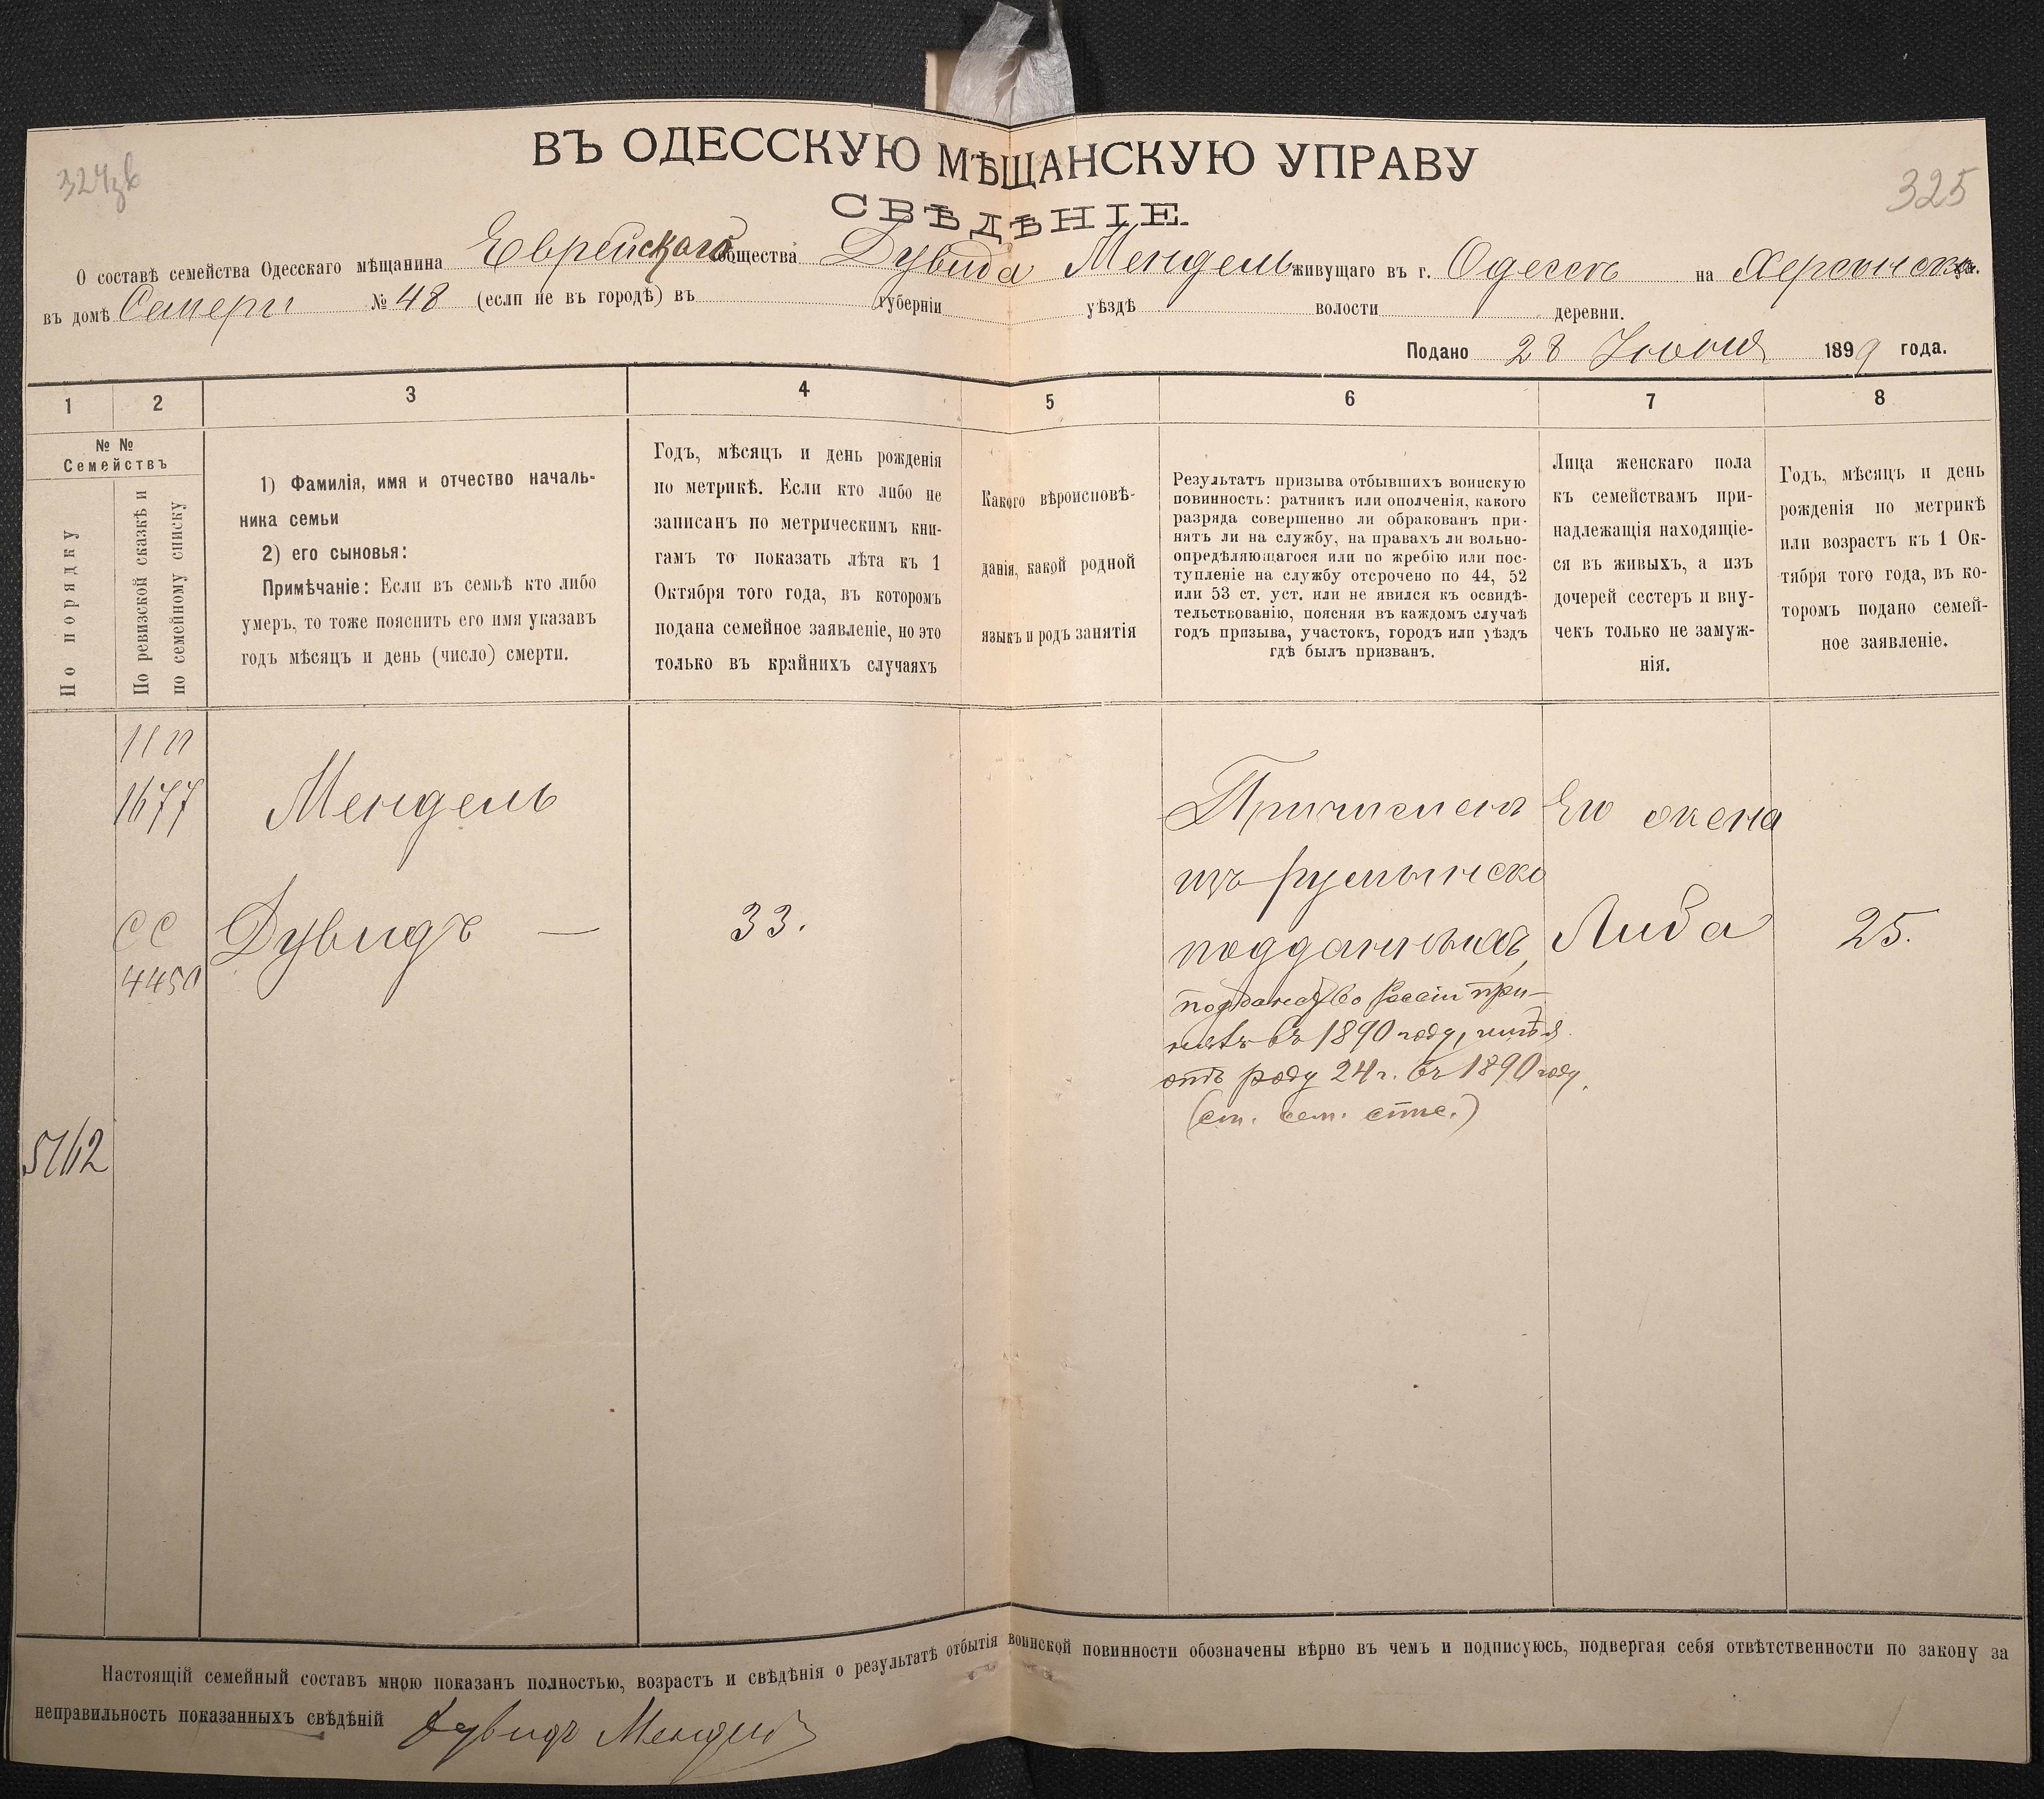 ВЪ ОДЕССКУЮ МѢЩАНСКУЮ УПРАВУ
324зв
325
СВѢДѢНІЕ.
О составѣ семейства Одесскаго мѣщанина Еврейскаго общества Дувида Мендель живущаго въ г. Одессѣ на Херсонск.
въ домѣ № 48 (если не въ городѣ) въ губерніи уѣздѣ волости деревни.
Подано 28 Іюня 1899 года.
1 2 3 4 5 6 7 8
№ №
Семействъ
По порядку
По ревизской сказкѣ и
по семейному списку
1) Фамилія, имя и отчество началь-
ника семьи
2) его сыновья:
Примѣчаніе: Если въ семьѣ кто либо
умеръ, то тоже пояснить его имя указавъ
годъ мѣсяцъ и день (число) смерти.
Годъ, мѣсяцъ и день рожденія
по метрикѣ. Если кто либо не
записанъ по метрическимъ кни-
гамъ то показать лѣта къ 1
Октября того года, въ которомъ
подана семейное заявленіе, но это
только въ крайнихъ случаяхъ
Какого вѣроисповѣ-
данія, какой родной
языкъ и родъ занятія
Результатъ призыва отбывшихъ воинскую
повинность: ратникъ или ополченія, какого
разряда совершенно ли обракованъ при-
нятъ ли на службу, на правахъ ли вольно-
опредѣляющагося или по жребію или пос-
тупленіе на службу отсрочено по 44, 52
или 53 ст. уст. или не явился къ освидѣ-
тельствованію, поясняя въ каждомъ случаѣ
годъ призыва, участокъ, городъ или уѣздъ
гдѣ былъ призванъ.
Лица женскаго пола
къ семействамъ при-
надлежащія находящіе-
ся въ живыхъ, а изъ
дочерей сестеръ и вну-
чекъ только не замуж-
нія.
Годъ, мѣсяцъ и день
рожденія по метрикѣ
или возрастъ къ 1 Ок-
тября того года, въ ко-
торомъ подано семей-
ное заявленіе.
1677
Мендель
СС
4450
Дувидъ —
33.
Причисленъ
изъ румынско
подданныхъ,
подданство Россіи при-
нялъ въ 1890 году, имѣя
отъ роду 24 г. въ 1890 году.
Его жена
Либа
25.
5162
Настоящій семейный составъ мною показанъ полностью, возрастъ и свѣдѣнія о результатѣ отбытія воинской повинности обозначены вѣрно въ чемъ и подписуюсь, подвергая себя отвѣтственности по закону за
неправильность показанныхъ свѣдѣній Дувидъ Мендель